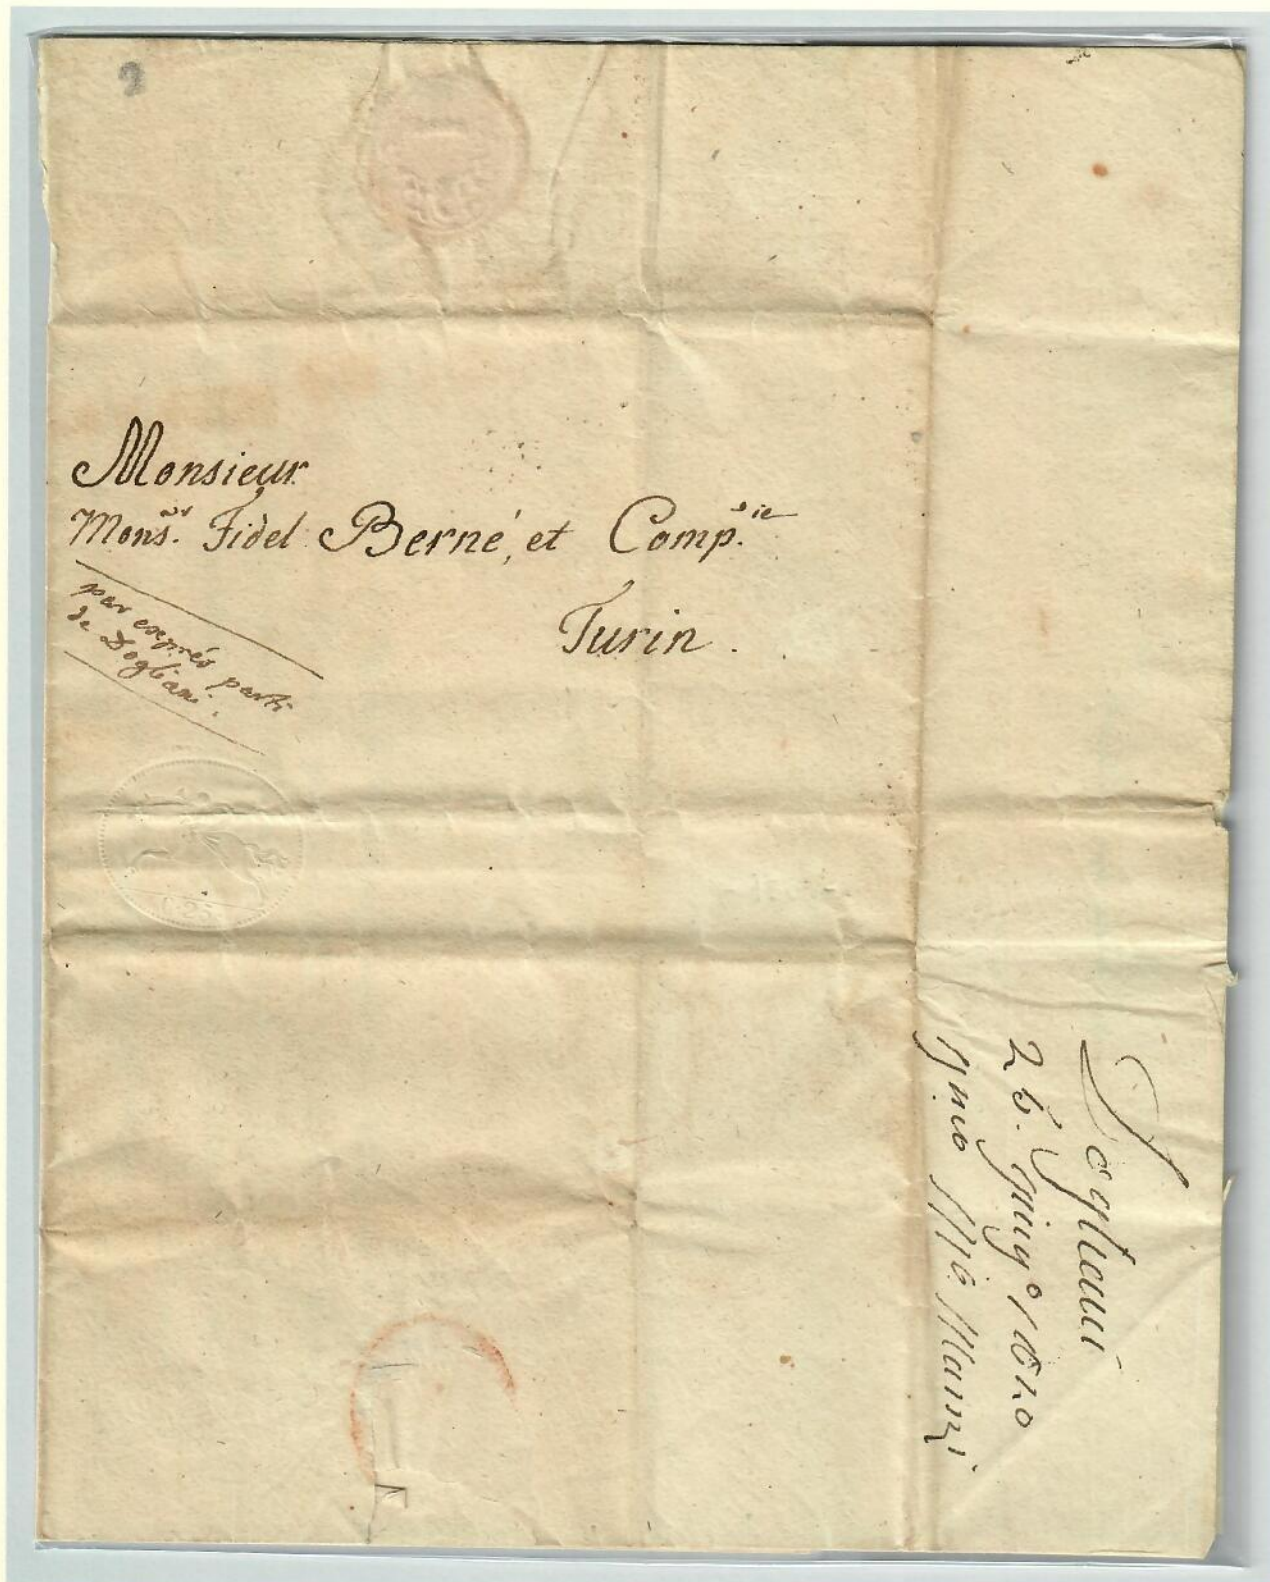 Monsieur
Mons.r Fidel Berné, et Comp.ie
Turin.
par exprés parti
de Dogliani.
C. 25
Dogliani
25. Giug.o 1820